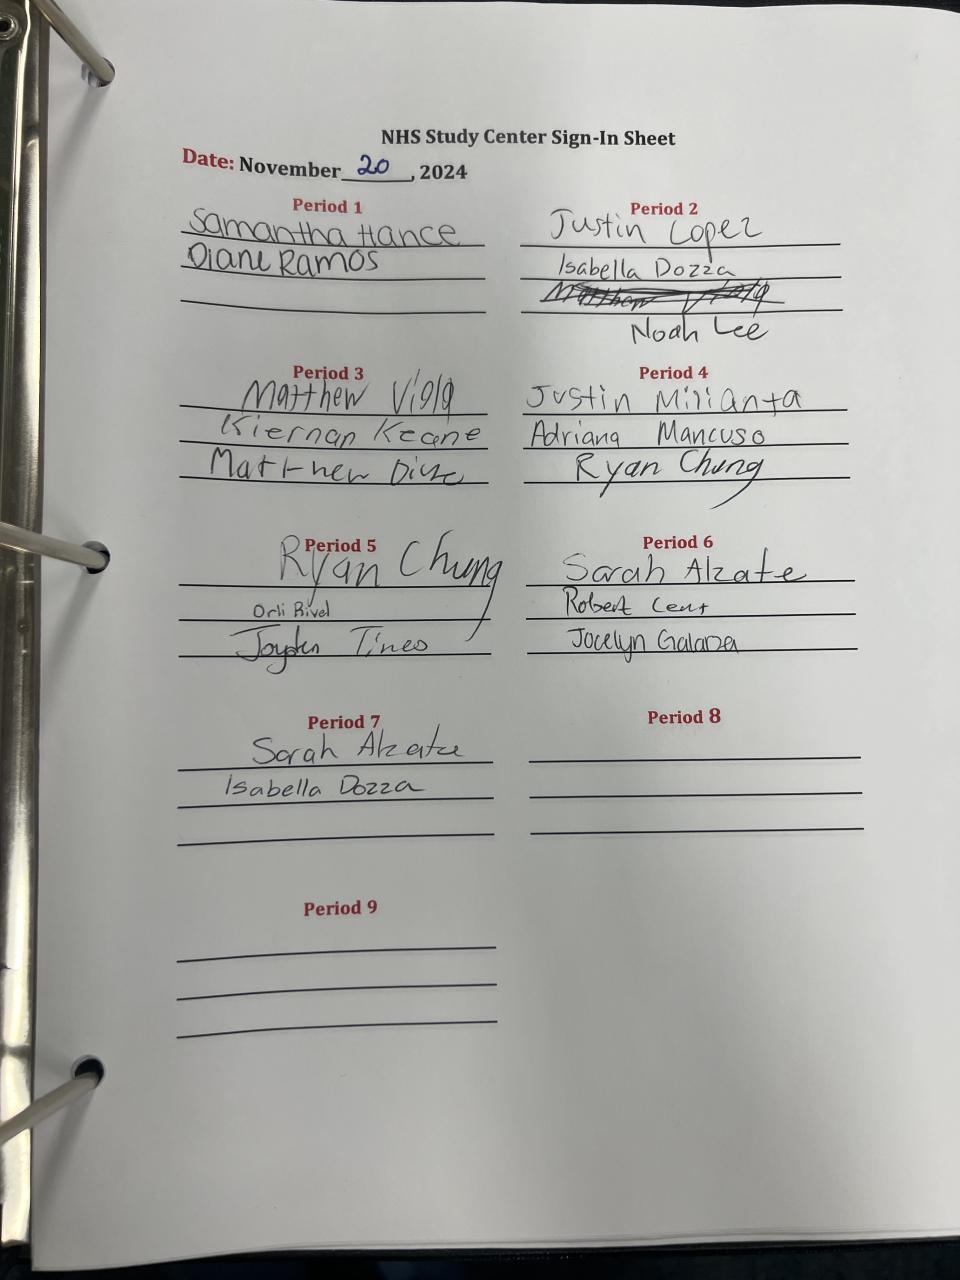 NHS Study Center Sign-In Sheet
Date: November 20, 2024
Period 1
Samantha Hance
Diane Ramos
Period 2
Justin Lopez
Isabella Dozza
Matthew Viola
Noah Lee
Period 3
Matthew Viola
Kiernan Keane
Matthew
Period 4
Justin Milianta
Adriana Mancuso
Ryan Chung
Period 5
Ryan Chung
Orli Rivel
Jayden Tineo
Period 6
Sarah Alzate
Robert
Jocelyn Galarza
Period 7
Sarah Alzate
Isabella Dozza
Period 8
Period 9